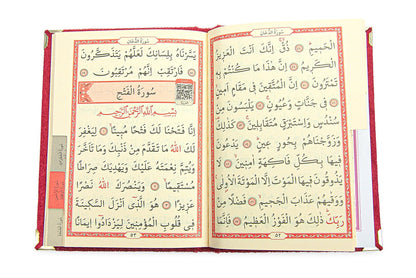 سُورَةُ الدُّخَانِ
الْحَمِيمِ ۝ ذُقْ إِنَّكَ أَنْتَ الْعَزِيزُ
الْكَرِيمُ ۝ إِنَّ هٰذَا مَا كُنْتُمْ بِهِ
تَمْتَرُونَ ۝ إِنَّ الْمُتَّقِينَ فِي مَقَامٍ أَمِينٍ
۝ فِي جَنَّاتٍ وَعُيُونٍ ۝ يَلْبَسُونَ مِنْ
سُنْدُسٍ وَإِسْتَبْرَقٍ مُتَقَابِلِينَ ۝
كَذٰلِكَ
وَزَوَّجْنَاهُمْ بِحُورٍ عِينٍ ۝ يَدْعُونَ
فِيهَا بِكُلِّ فَاكِهَةٍ آمِنِينَ ۝ لَا
يَذُوقُونَ فِيهَا الْمَوْتَ إِلَّا الْمَوْتَةَ الْأُولَىٰ
وَوَقَاهُمْ عَذَابَ الْجَحِيمِ ۝ فَضْلًا مِنْ
رَبِّكَ ذٰلِكَ هُوَ الْفَوْزُ الْعَظِيمُ ۝ فَإِنَّمَا
٥٢
سُورَةُ الدُّخَانِ
يَسَّرْنَاهُ بِلِسَانِكَ لَعَلَّهُمْ يَتَذَكَّرُونَ
۝ فَارْتَقِبْ إِنَّهُمْ مُرْتَقِبُونَ ۝
سُورَةُ الْفَتْحِ
بِسْمِ اللهِ الرَّحْمٰنِ الرَّحِيمِ
إِنَّا فَتَحْنَا لَكَ فَتْحًا مُبِينًا ۝ لِيَغْفِرَ
لَكَ اللهُ مَا تَقَدَّمَ مِنْ ذَنْبِكَ وَمَا تَأَخَّرَ
وَيُتِمَّ نِعْمَتَهُ عَلَيْكَ وَيَهْدِيَكَ صِرَاطًا
مُسْتَقِيمًا ۝ وَيَنْصُرَكَ اللهُ نَصْرًا
عَزِيزًا ۝ هُوَ الَّذِي أَنْزَلَ السَّكِينَةَ
فِي قُلُوبِ الْمُؤْمِنِينَ لِيَزْدَادُوا إِيمَانًا
٥٣